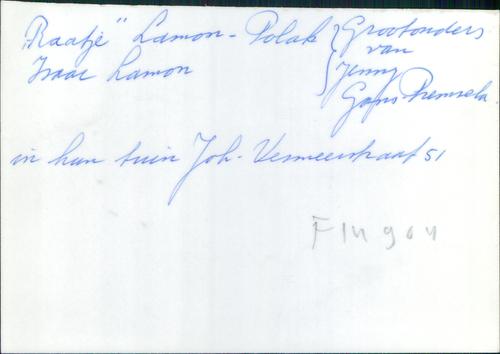 "Raatje" Lamon-Polak } Grootouders
van
Isaac Lamon } Jenny
Gans-Premsela
in hun tuin Joh. Vermeerstraat 51
F14904